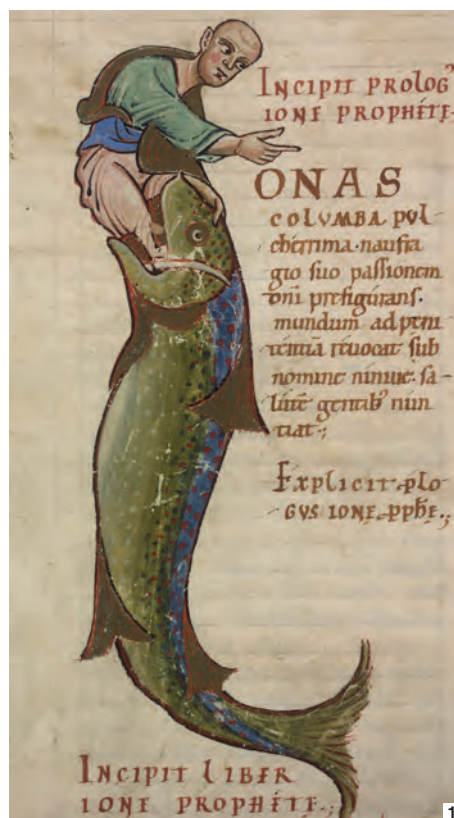 INCIPIT PROLOGꝰ
IONE PROPHETE.
ONAS
COLVMBA PUL
cherrima. naufra
gio suo passionem
dnī prefigurans.
mundum ad peni
tentiā reuocat sub
nomine niniue. sa-
lutē gentibꝰ nun
tiat.;
EXPLICIT PLO
GVS IONE. PPHE.;
INCIPIT LIBER
IONE PROPHETE.;
1